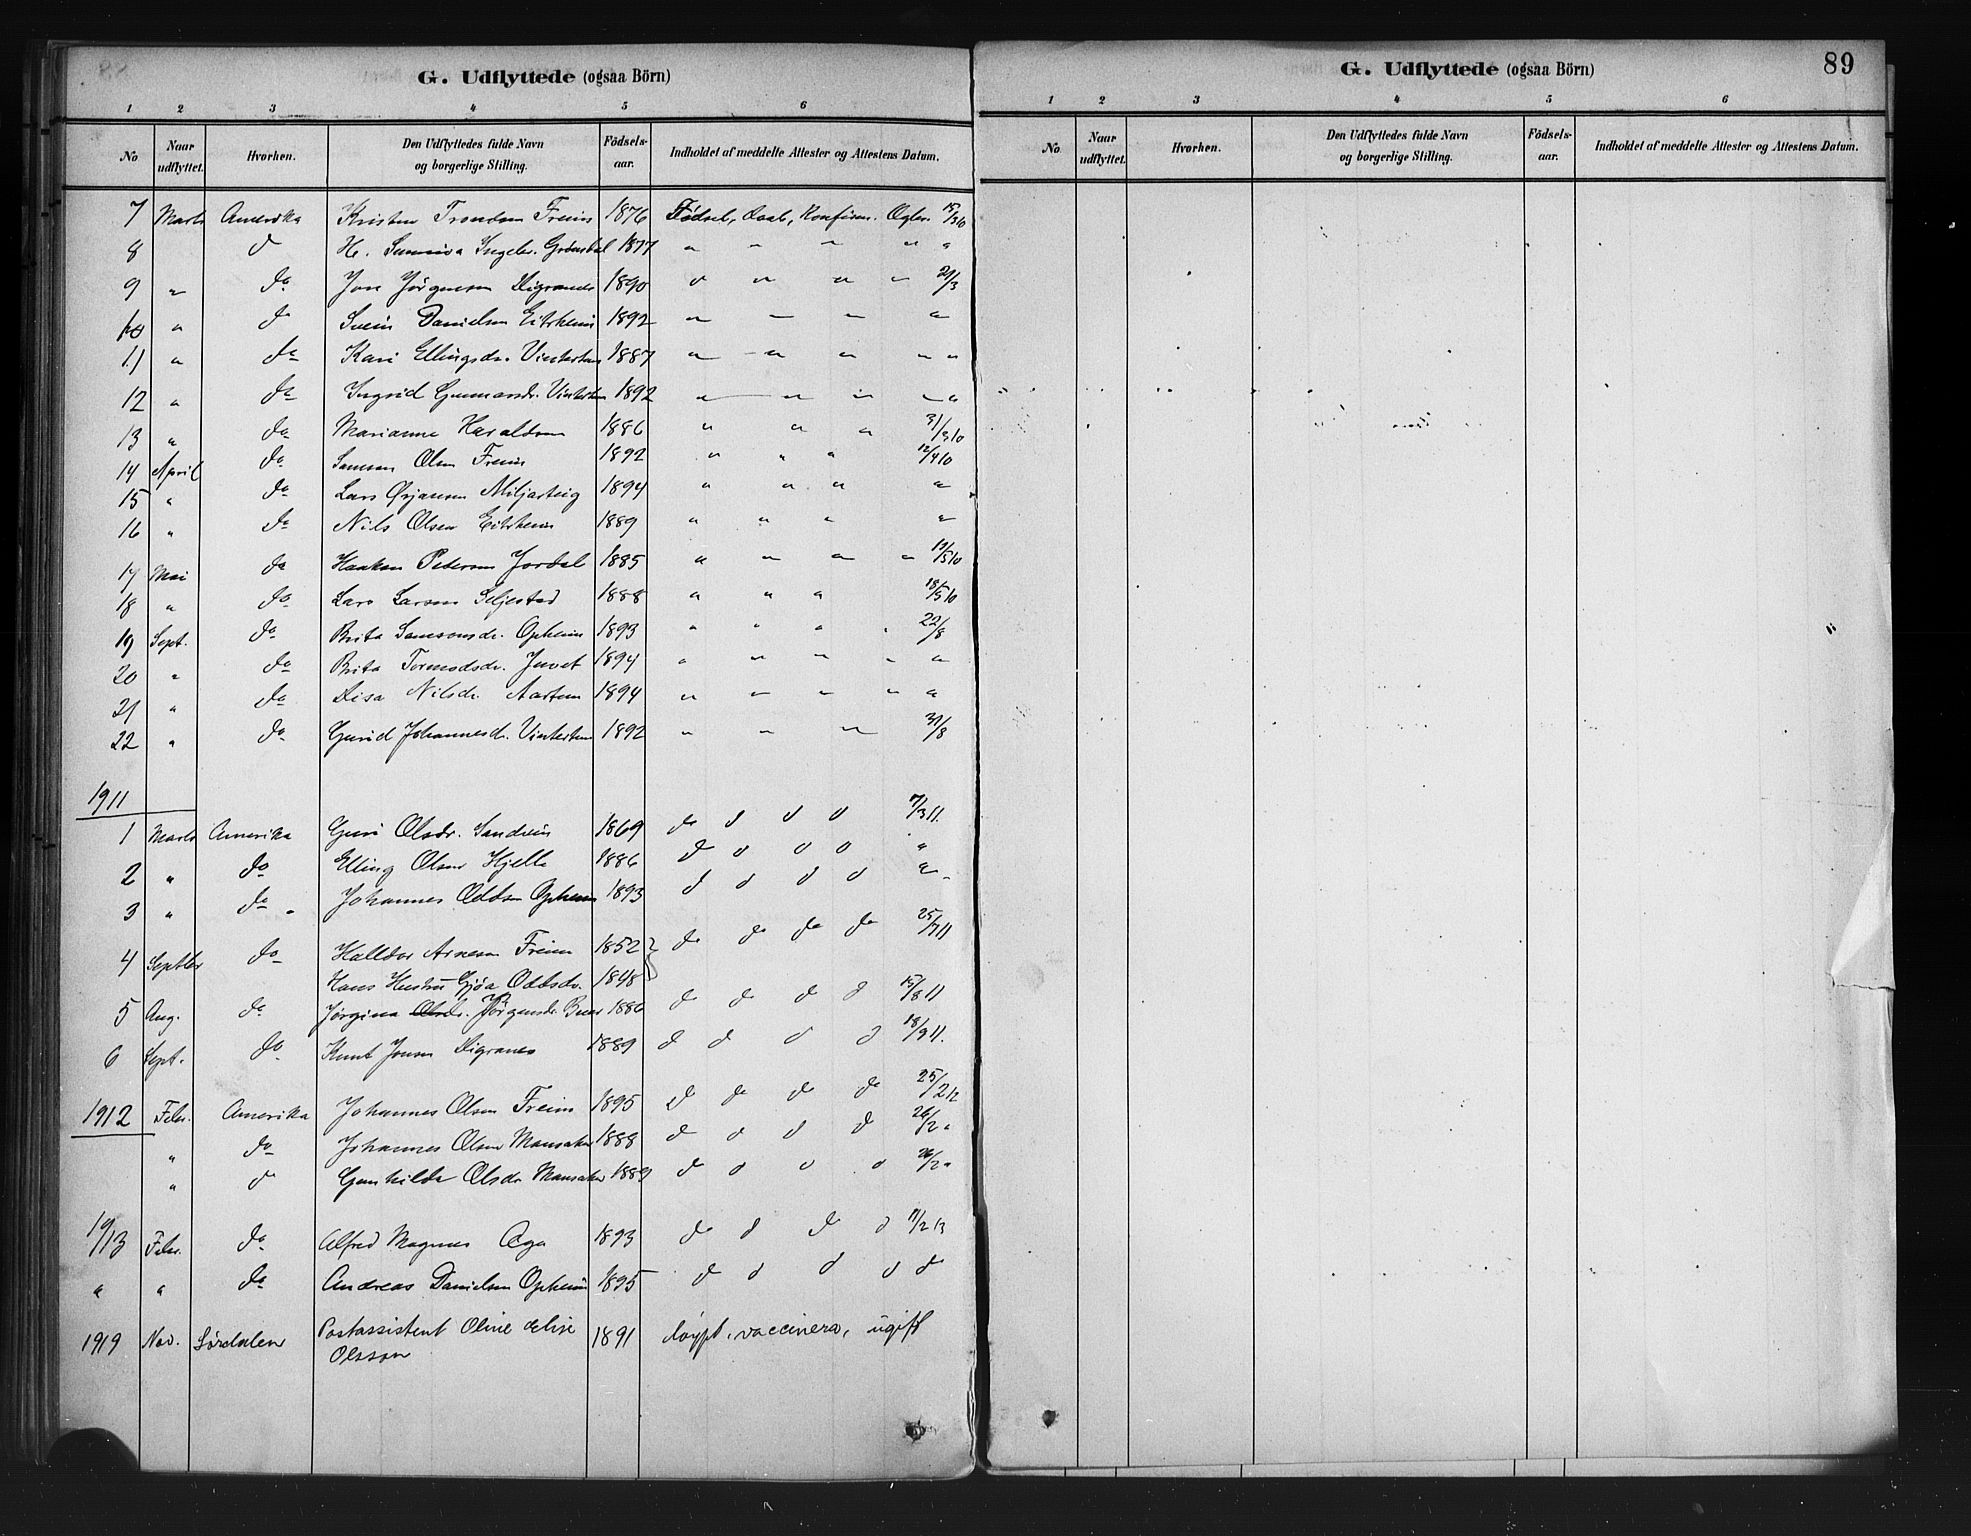 G. Udflyttede (ogsaa Börn)
1 2 3 4 5 6
No Naar udflyttet. Hvorhen. Den Udflyttedes fulde Navn og borgerlige Stilling. Födsels-aar. Indholdet af meddelte Attester og Attestens Datum.
7 Marts Amerika Kristen Freim 1876 Fødsel, Daab, Konfirm. 15/3 10
8 d H. Sunniva Ingebr. 1877 " " " " "
9 " do Jon Jörgensen Digranes 1890 " " " " 29/3
10 " do Svein Danielsen Eitrheim 1892 " " " "
11 " do Kari Ellingsdr. Vintertun 1887 " " " " "
12 " do Ingrid Gunnarsdr. Vintertun 1892 " " " " "
13 " do Marianne Haraldsen 1886 " " " 31/3 10
14 April do Samson Olsen Freim 1892 " " " 12/4 10
15 " do Lars Miljarteig 1894 " " " "
16 " do Nils Olsen Eitrheim 1889 " " " "
17 Mai do Haakon Petersen Jordal 1885 " " " " 11/5 10
18 " do Lars Larsen Seljestad 1888 " " " 18/5 10
19 Sept. do Brita Samsonsdr. Opheim 1893 " " " " 22/8
20 " do Brita Tormodsdr. Juvet 1894 " " " " "
21 " do Lisa Nilsdr. Aartun 1894 " " " " "
22 " do Gurid Johannesdr. Vintertun 1892 " " " 31/8
1911
1 Marts Amerika Guri Olsdr. Sandvin 1869 do d d d 7/3 11.
2 " do Elling Olsen Hjelle 1886 d d d d "
3 " do Johannes Oddsen Opheim 1893 d d d d "
4 Septbr do Halldor Arnesen Freim 1852 do do do do 25/ 11
Hans Hustru Gjøa Oddsdr. 1848
5 Aug. do Jørgina Olsdr. Jörgensdr. Buer 1886 do do do d 15/8 11
6 Sept. do Knut Jonsen Digranes 1889 d d d d 18/9 11.
1912 Febr. Amerika Johannes Olsen Freim 1895 do do do do 25/2 12
" do Johannes Olsen Mansaker 1888 d d d d 26/2 "
" d Gunhilde Olsdr Mansaker 1889 do d d d 26/2 "
19/13 Febr. do Alfred Magnus Aga 1893 do d do d 11/2 13
" " do Andreas Danielsen Opheim 1895 d d d d do
1919 Nov. Sørdalen Postassistent Oline Olsson 1891 døypt, vaccinera, ugift
G. Udflyttede (ogsaa Börn) 89
1 2 3 4 5 6
No. Naar udflyttet. Hvorhen. Den Udflyttedes fulde Navn og borgerlige Stilling. Födsels-aar. Indholdet af meddelte Attester og Attestens Datum.